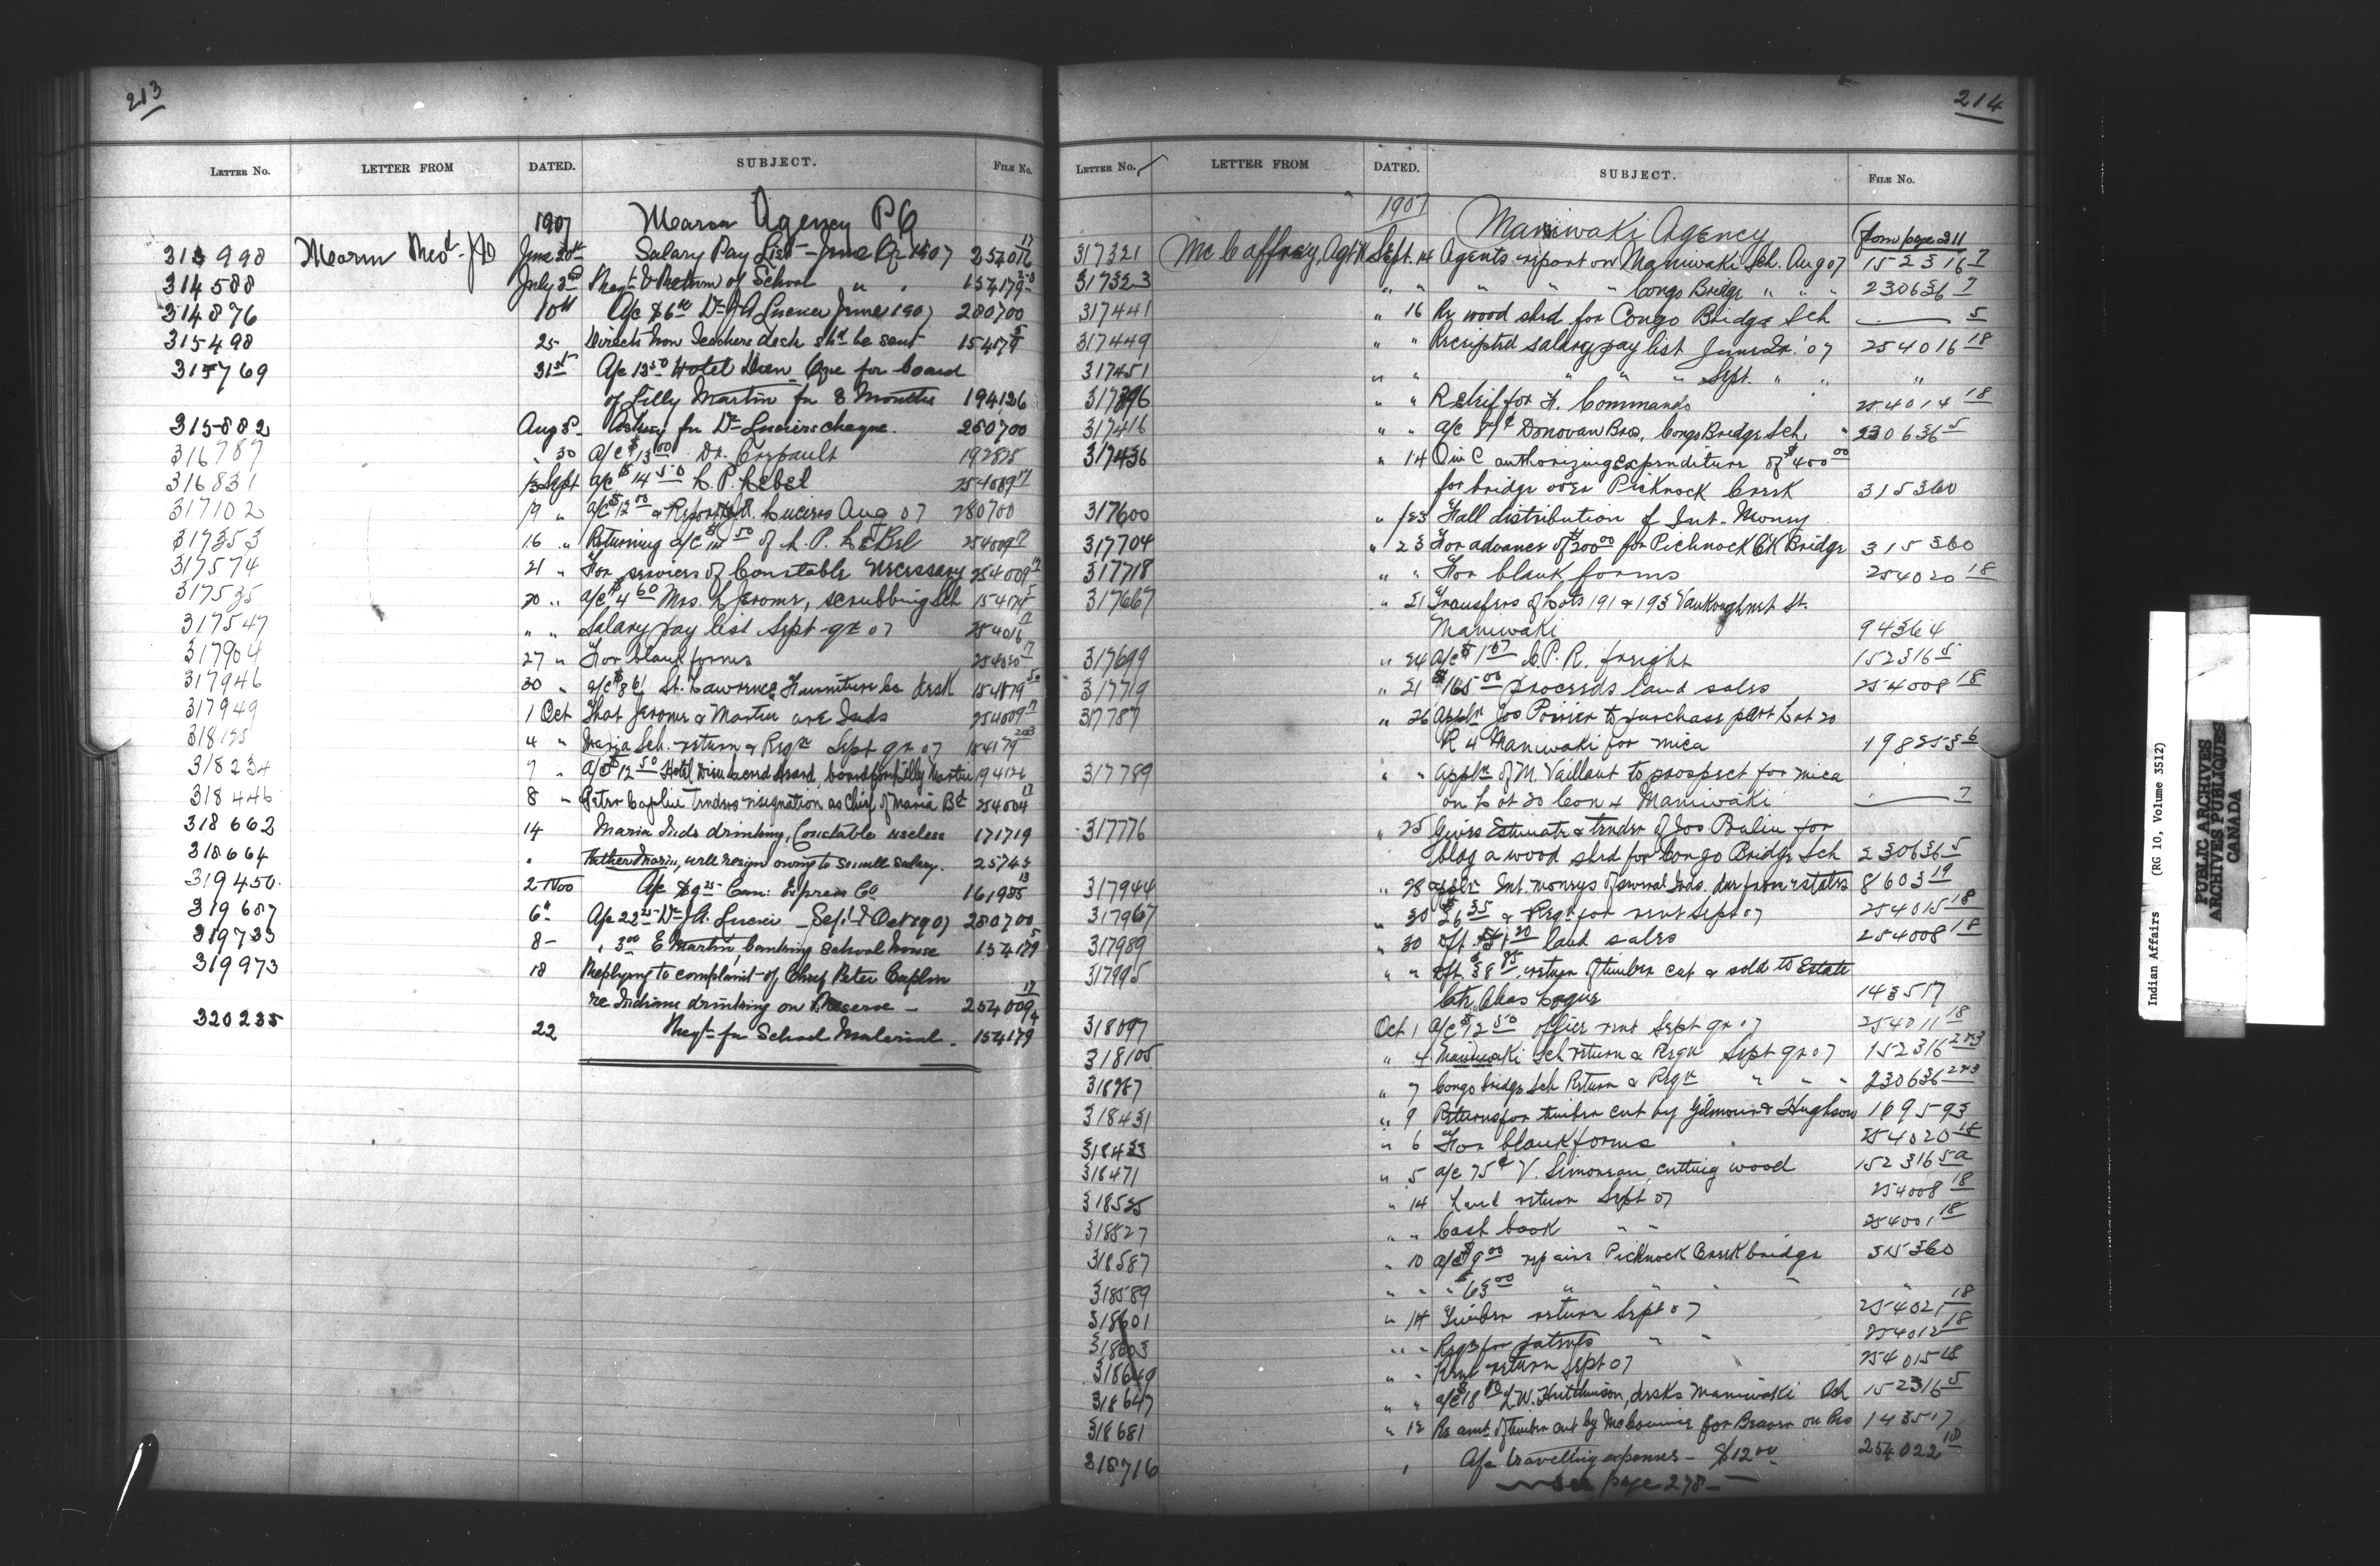 213
LETTER NO. LETTER FROM DATED. SUBJECT. FILE NO.
1907 Maria Agency P Q
313998 Marin Theod. June 30th Salary Pay List - June Qr 1907 254016 17
314588 July 3rd Reqt & Return of School " " 154179
314876 10th A/c $6 00 Dr J A Lucier June 1907 280700
315498 25 Directs how Teachers desk shd be sent 154179 5
315769 31st A/c 13 50 Hotel Dieu Que for board
of Lilly Martin for 3 Months 194126
315882 Aug 8 Asking for Dr Luciers cheque. 280700
316787 " 30 a/c $13 00 Dr. Crepault 192875
316831 13 Sept a/c $14 50 L. P. LeBel 254009 17
317102 19 " a/c $12 00 & Report J.A. Luciers Aug 07 280700
317353 16 " Returning a/c $14 50 of L. P. LeBel 254009 17
317574 21 " For services of Constable necessary 254009 17
317535 20 " a/c $4 60 Mrs. L Jerome, scrubbing Sch 154179 5
317547 " " Salary pay list Sept qr 07 254016 17
317904 27 " For blank forms 254020 17
317946 30 " a/c $8 61 St. Lawrence Furniture Co desk 154179
317949 1 Oct That Jerome & Martin are Inds 254009 17
318155 4 " Maria Sch. return & Reqn Sept qr 07 154179 2&3
318234 7 " A/c $12 50 Hotel Dieu Sacred Heart, board for Lilly Martin 194126
318446 8 " Peter Caplin tenders resignation as Chief of Maria Bd 254004 17
318662 14 Maria Inds drinking, Constable useless 171719
318664 " Father Marin, will resign owing to small salary. 25745
319450 2 Nov A/c $9 25 Can: Express Co 161985 13
319687 6" A/c 22 25 Dr J A. Lucier - Sept & Oct 1907 280700
319733 8 - " 3 00 E Martin, banking school house 154179 5
319973 18 Replying to complaint of Chief Peter Caplin
re Indians drinking on Reserve - 254009 17
320235 22 Reqt for School Material. 154179 4
214
LETTER NO. LETTER FROM DATED. SUBJECT. FILE NO.
1907 Maniwaki Agency (from page 211
317321 McCaffrey, Agt W Sept. 14 Agents report on Maniwaki Sch. Aug 07 152316 7
317323 " " " " " Congo Bridge " " " 230636 7
317441 " 16 Re wood shed for Congo Bridge Sch 5
317449 " " Receipted salary pay list June Qr. '07 254016 18
317451 " " " " " Sept. " " "
317396 " " Relief for F. Commands 254014 18
317416 " " a/c 87¢ Donovan Bros, Congo Bridge Sch. " 230636 5
317436 " 14 O in C authorizing expenditure of $400 00
for bridge over Picknock Creek 315360
317600 " 23 Fall distribution of Int. Money
317704 " 23 For advance of $200 00 for Picknock Ck Bridge 315360
317718 " " For blank forms 254020 18
317667 " 21 Transfers of Lots 191 & 193 Vankoughnet St.
Maniwaki 94364
317699 " 24 a/c $1 57 C. P. R. freight 152316 5
317719 " 21 $165 00 proceeds land sales 254008 18
317787 " 26 Appln Jos Poirier to purchase part Lot 20
R 4 Maniwaki for mica 198253 6
317789 " " Appln of M. Vaillant to prospect for mica
on Lot 20 Con 4 Maniwaki 7
317776 " 25 Gives Estimate & tender of Jos Beaulieu for
bldg a wood shed for Congo Bridge Sch 230636 5
317944 " 28 appln Int. moneys of several Inds. due from estates 8603 19
317967 " 30 $26 35 & Reqn for rent Sept 07 254015 18
317989 " 30 Dft. $51 20 land sales 254008 18
317995 " " Dft. $38 85, return of timber cut & sold to Estate
late Chas Logue 143517
318097 Oct 1 a/c $12 50 office rent Sept qr 07 254011 18
318105 " 4 Maniwaki Sch return & Reqn Sept qr 07 152316 2&3
318287 " 7 Congo Bridge Sch Return & Reqn " " " 230636 2&3
318431 " 9 Returns for timber cut by Gilmour & Hughson 169593
318433 " 6 For blank forms 254020 18
318471 " 5 a/c 75¢ V. Simoneau, cutting wood 152316 5a
318525 " 14 Land return Sept 07 254008 18
318527 " " Cash book " " 254001 18
318587 " 10 a/c $9 00 repairs Picknock Creek bridge 315360
318589 " " " $63 00 " " " "
318601 " 14 Timber return Sept 07 254021 18
318603 " " Reqn for patents " " 254012 18
318649 " " Rent return Sept 07 254015 18
318647 " " a/c $18 00 L.W. Hutchinson, desks Maniwaki Sch 152316 5
318681 " 12 Re amt. of timber cut by for on Res 143517
318716 " A/c travelling expenses - $12 00 254022 18
see page 278 -
Indian Affairs (RG 10, Volume 3512)
PUBLIC ARCHIVES
ARCHIVES PUBLIQUES
CANADA